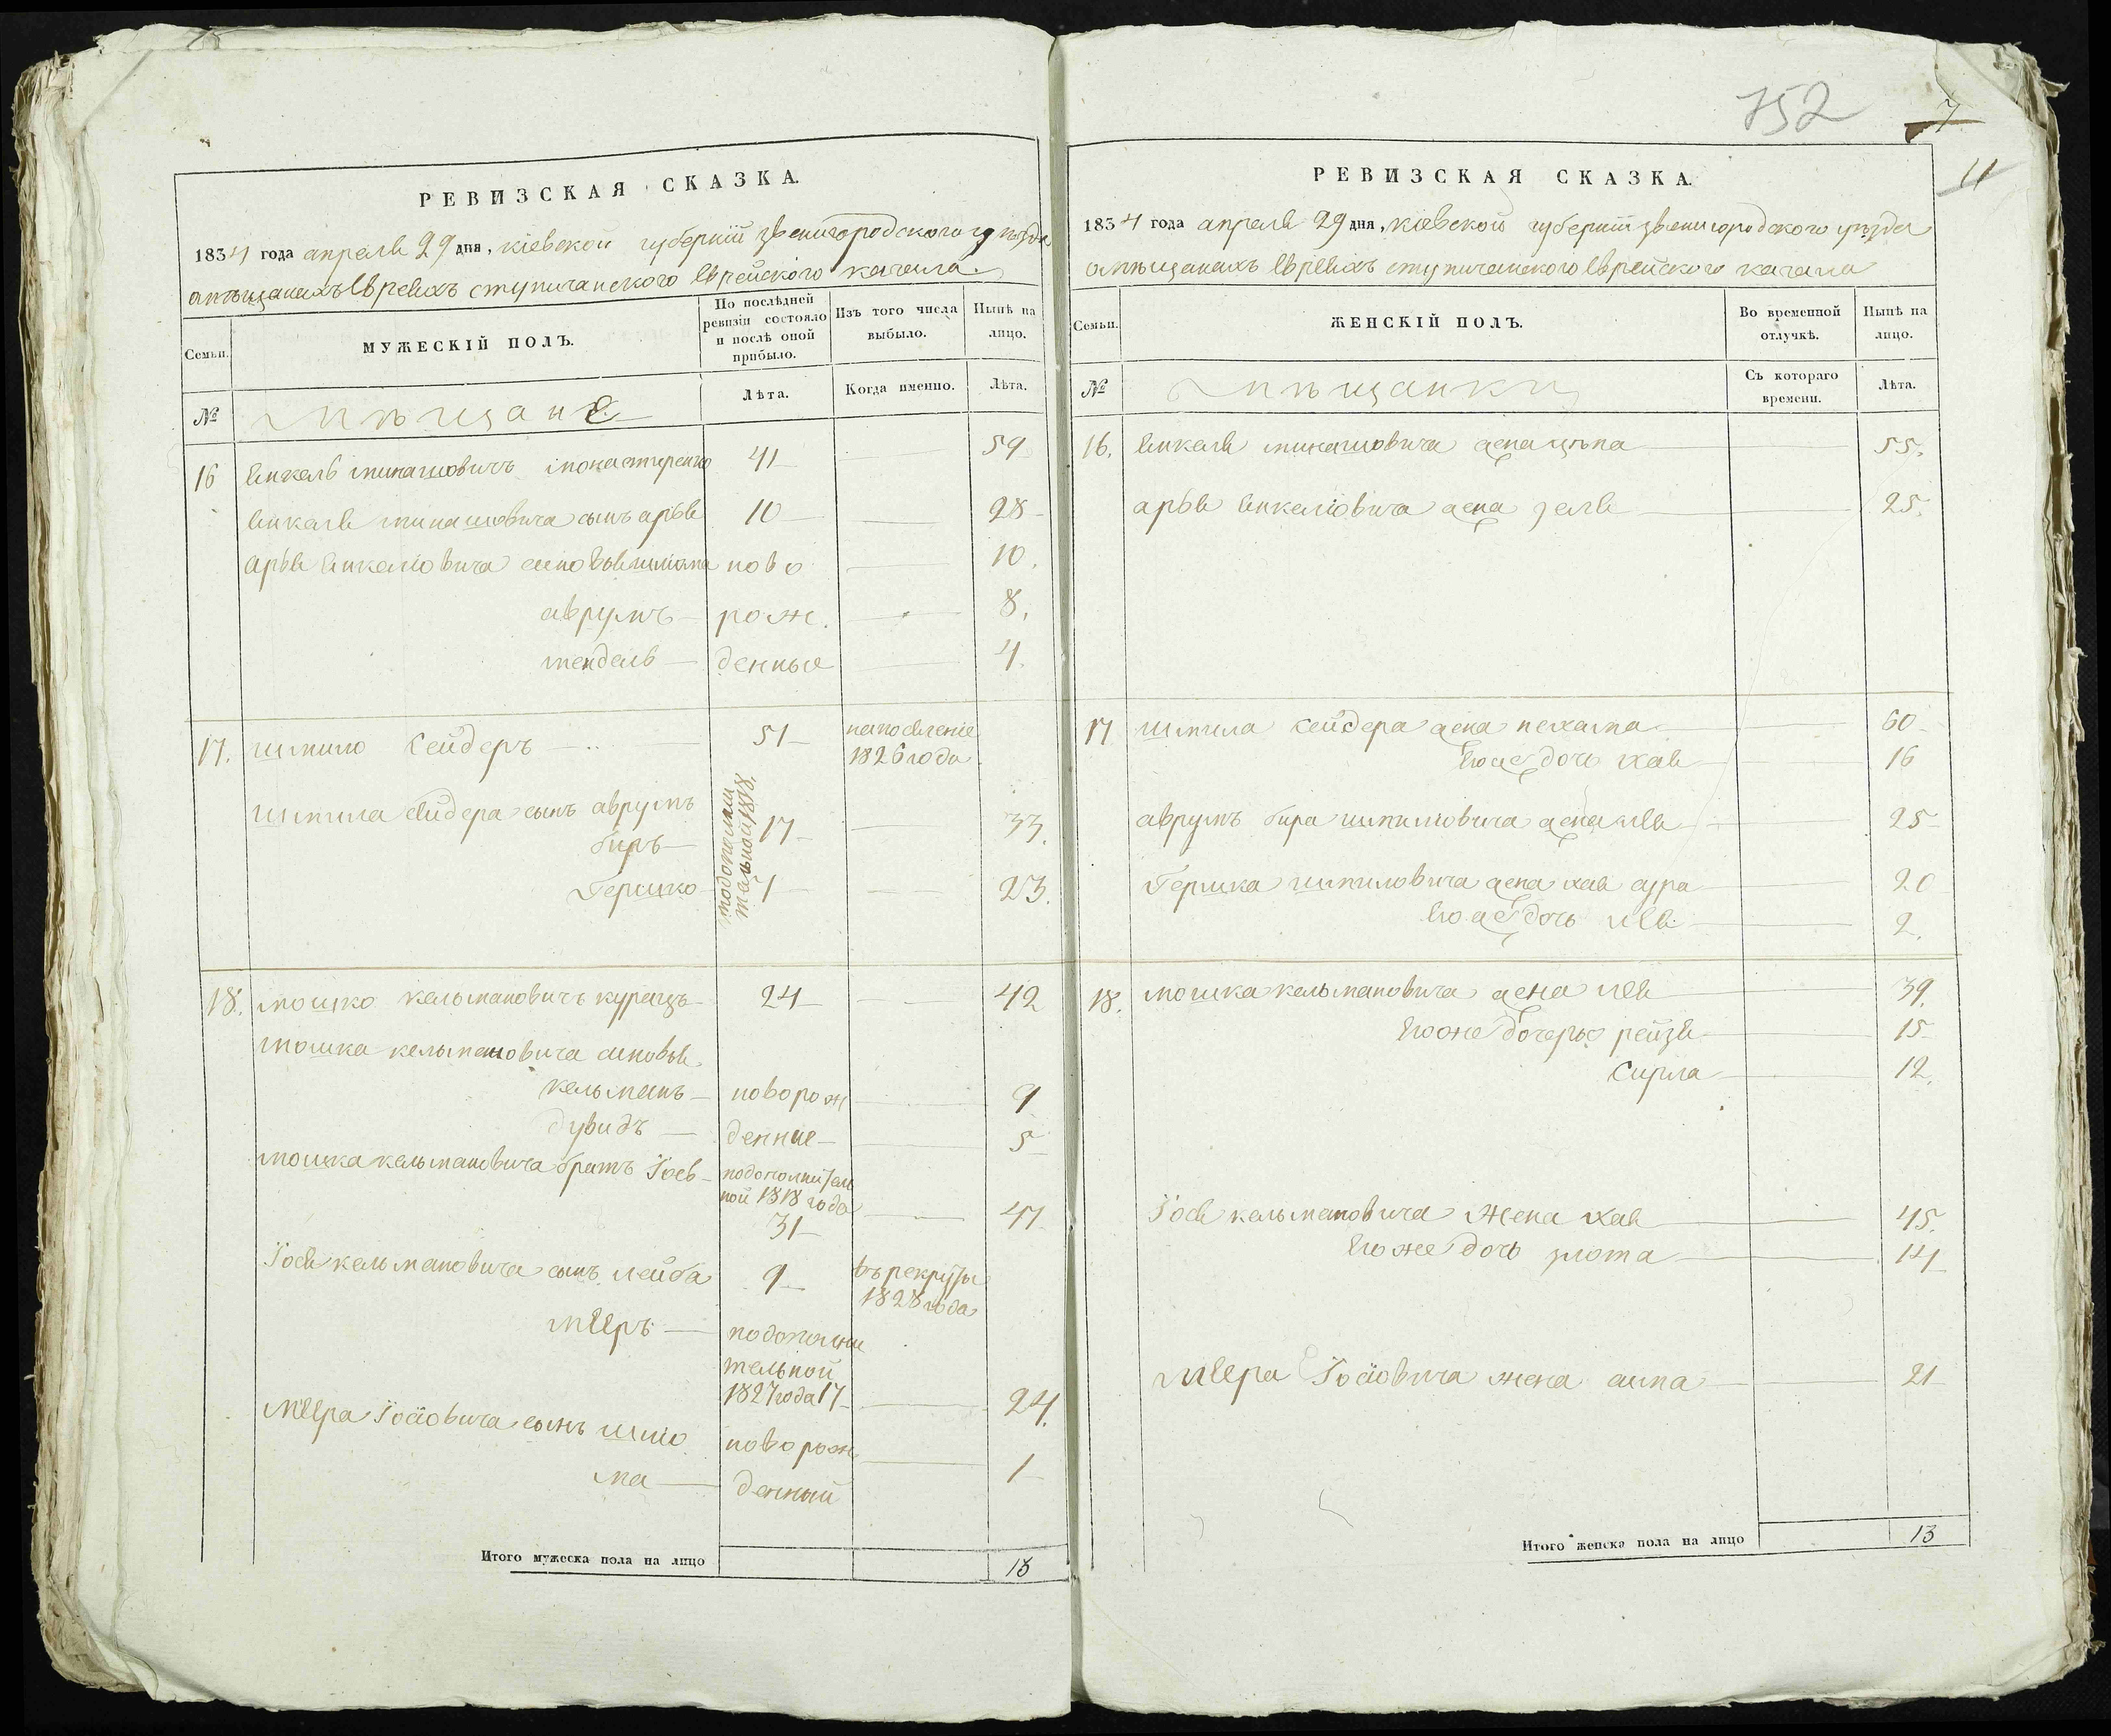 РЕВИЗСКАЯ СКАЗКА.
1834 года апреля 29 дня, кіевской губерніи звенигородского уѣзда
омѣщанахъ Евреяхъ ступичанского Еврейского кагала.
Семьи.
МУЖЕСКІЙ ПОЛЪ.
По послѣдней ревизіи состояло и послѣ оной прибыло.
Изъ того числа выбыло.
Нынѣ на лицо.
№
мѣщане
Лѣта.
Когда именно.
Лѣта.
16 Янкель минашовичъ 41 59
Янкеля минашовича сынъ арья 10 28
арья Янкеліовича синовья шліома ново 10.
аврумъ рож. 8.
мендель денные 4.
17. шмило Сейдеръ 51 напоселеніе 1826 года
шмила Сейдера сынъ аврумъ
биръ 17 33.
подополнительной 1818.
Гершко 23.
18. мошко кельмановичъ 24 42
мошка кельмановича синовья
кельманъ новорож 9
дувидъ денние 5
мошка кельмановича братъ Іось подополнительной 1818 года
31 47
Іося кельмановича сынъ лейба 9 върекруты 1828 года
мееръ подополни
тельной
1827 года 17 24.
меера Іосіовича сынъ шліо новорож 1
ма денный
Итого мужеска пола на лицо 13
752
7
11
РЕВИЗСКАЯ СКАЗКА.
1834 года апреля 29 дня, кіевской губерніи звенигородского уѣзда
омѣщанахъ Евреяхъ ступичанского Еврейского кагала
Семьи.
ЖЕНСКІЙ ПОЛЪ.
Во временной отлучкѣ.
Нынѣ на лицо.
№
мѣщанки
Съ котораго времени.
Лѣта.
16. Янкеля минашовича жена ципа 55.
арья Янкеліовича жена 25.
17 шмила Сейдера жена нехама 60
Егоже дочь хая 16
аврумъ бира шмиліовича жена лея 25
Гершка шмиловича жена хая сура 20
Егоже дочь лея 2.
18. мошка кельмановича жена лея 39.
Егоже дочерья рейзя 15
Сирла 12.
Іося кельмановича жена хая 45.
Егоже дочь злота 14
меера Іосіовича жена 21
Итого женска пола на лицо 13